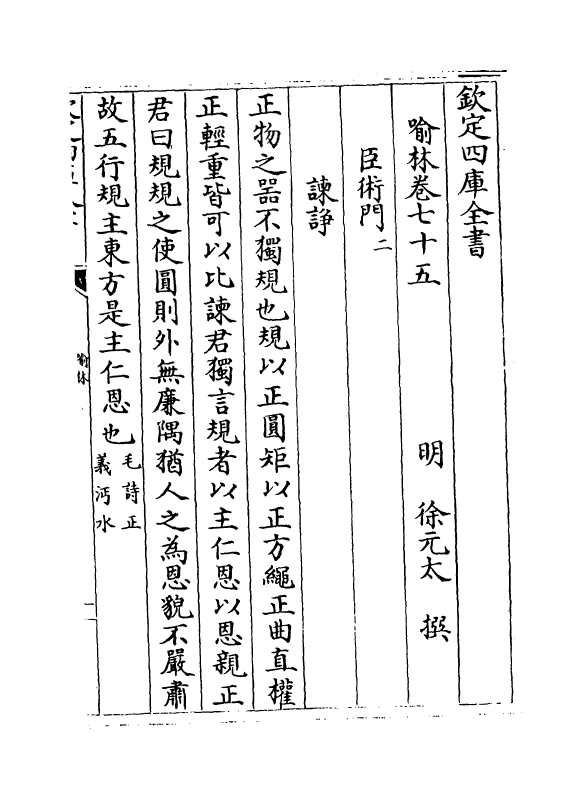 欽定四庫全書
喻林卷七十五　明　徐元太　撰
臣術門二
諫諍
正物之器不獨規也規以正圓矩以正方繩正曲直權
正輕重皆可以比諫君獨言規者以主仁恩以恩親正
君曰規規之使圓則外無廉隅猶人之為恩貌不嚴肅
故五行規主東方是主仁恩也毛詩正
義沔水
喻林
一